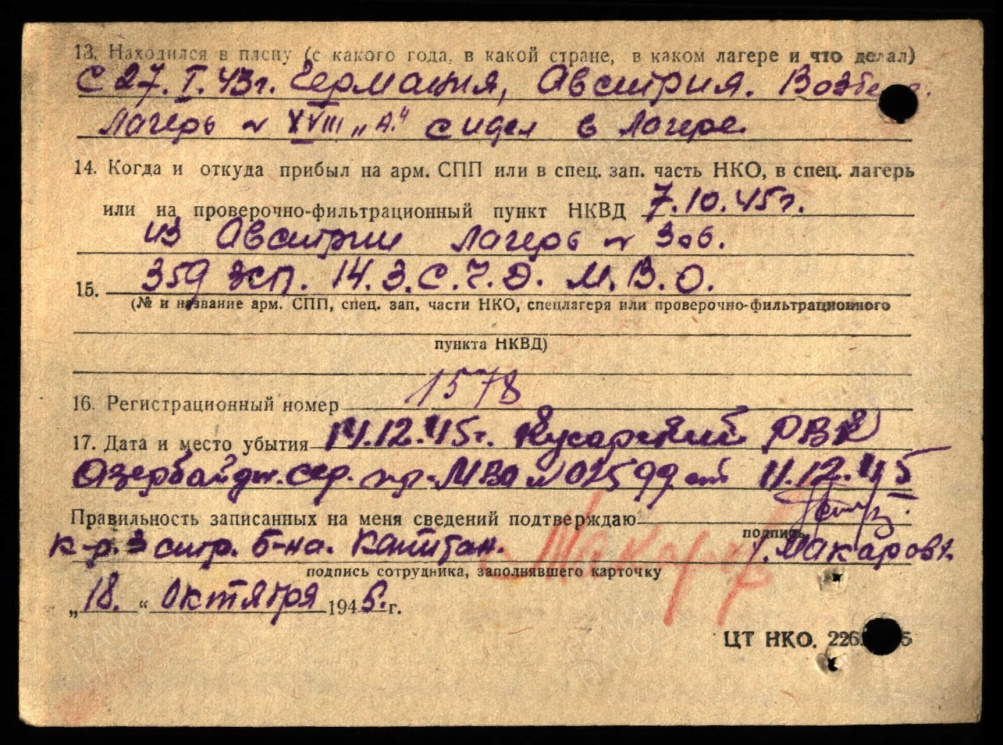 13. Находился в плену (с какого года, в какой стране, в каком лагере и что делал)
С 27.I.43г. Германия, Австрия.
Лагерь № XVIII „А." сидел в Лагере.
14. Когда и откуда прибыл на арм. СПП или в спец. зап. часть НКО, в спец. лагерь
или на проверочно-фильтрационный пункт НКВД 7.10.45г.
из Австрии лагерь № 306.
15. 359 зсп. 14. З.С.Ч.Д. М.В.О.
(№ и название арм. СПП, спец. зап. части НКО, спецлагеря или проверочно-фильтрационного
пункта НКВД)
16. Регистрационный номер 1578
17. Дата и место убытия 14.12.45г. Кусарский РВК
Азербайдж. сер. пр. МВО № 02599 от 11.12.45
Правильность записанных на меня сведений подтверждаю
подпись
к-р. 3 стр. б-на. Капитан. Макаров
подпись сотрудника, заполнявшего карточку
„18." Октября 1945.г.
Макаров
ЦТ НКО. 226